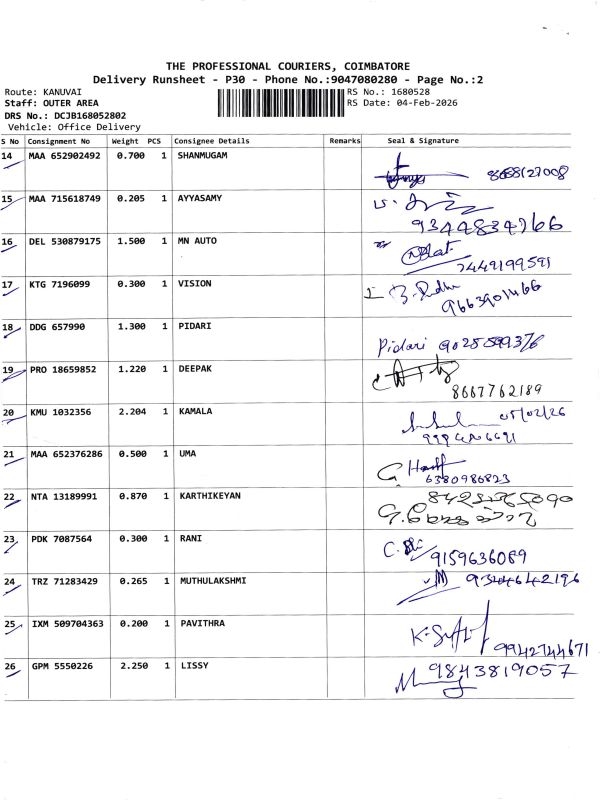 THE PROFESSIONAL COURIERS, COIMBATORE
Delivery Runsheet - P30 - Phone No.:9047080280 - Page No.:2
Route: KANUVAI
Staff: OUTER AREA
DRS No.: DCJB168052802
Vehicle: Office Delivery
RS No.: 1680528
RS Date: 04-Feb-2026
S No Consignment No Weight PCS Consignee Details Remarks Seal & Signature
14 MAA 652902492 0.700 1 SHANMUGAM
15 MAA 715618749 0.205 1 AYYASAMY
9344834766
16 DEL 530879175 1.500 1 MN AUTO
7449199591
17 KTG 7196099 0.300 1 VISION
18 DDG 657990 1.300 1 PIDARI
Pidari
19 PRO 18659852 1.220 1 DEEPAK
8667762189
20 KMU 1032356 2.204 1 KAMALA
05/02/26
21 MAA 652376286 0.500 1 UMA
6380986823
22 NTA 13189991 0.870 1 KARTHIKEYAN
23 PDK 7087564 0.300 1 RANI
9159636089
24 TRZ 71283429 0.265 1 MUTHULAKSHMI
9344642196
25 IXM 509704363 0.200 1 PAVITHRA
9942744671
26 GPM 5550226 2.250 1 LISSY
9843819057